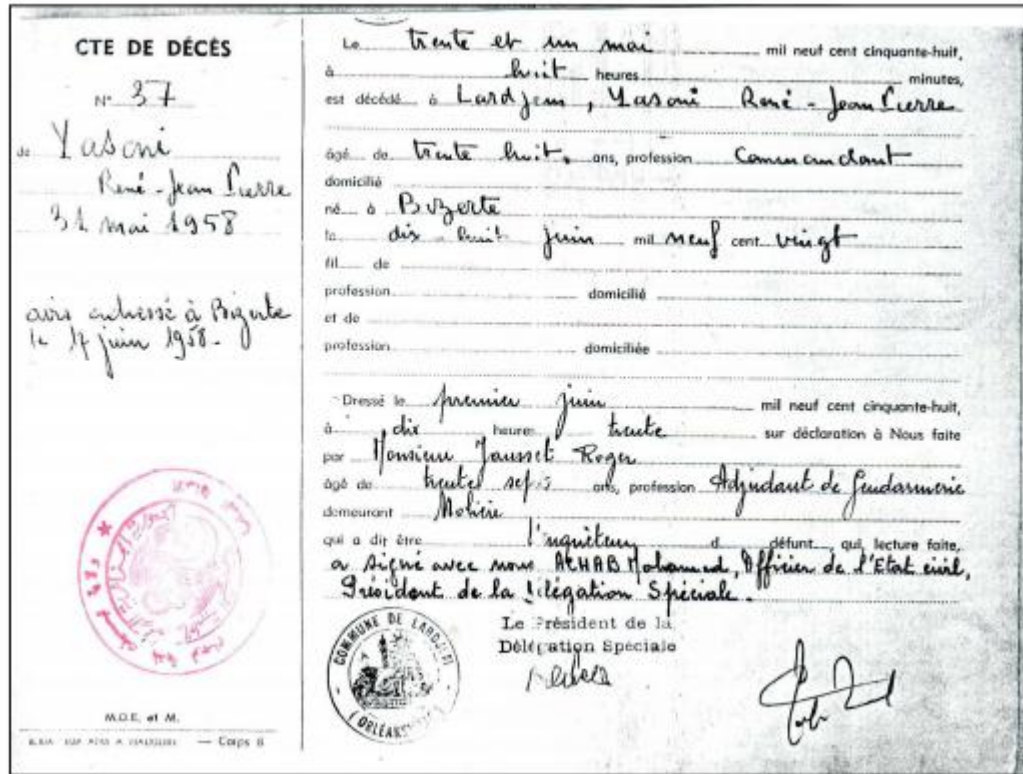 CTE DE DÉCÈS
N° 37
de Yasoni
René-Jean Pierre
31 mai 1958
avis adressé à Bizerte
le 17 juin 1958.
M.D.E. et M.
— Corps 8
Le trente et un mai mil neuf cent cinquante-huit,
à huit heures minutes,
est décédé à Lardjem, Yasoni René-Jean Pierre
âgé de trente huit ans, profession Commandant
domicilié
né à Bizerte
le dix huit juin mil neuf cent vingt
fil de
profession domicilié
et de
profession domiciliée
Dressé le premier juin mil neuf cent cinquante-huit,
à dix heures trente sur déclaration à Nous faite
par Monsieur Jausset Roger
âgé de trente sept ans, profession Adjudant de Gendarmerie
demeurant Molière
qui a dit être l'enquêteur d défunt, qui, lecture faite,
a signé avec nous ACHAB Mohamed, Officier de l'Etat civil,
Président de la Délégation Spéciale.
Le Président de la
Délégation Spéciale
COMMUNE DE LARDJEM